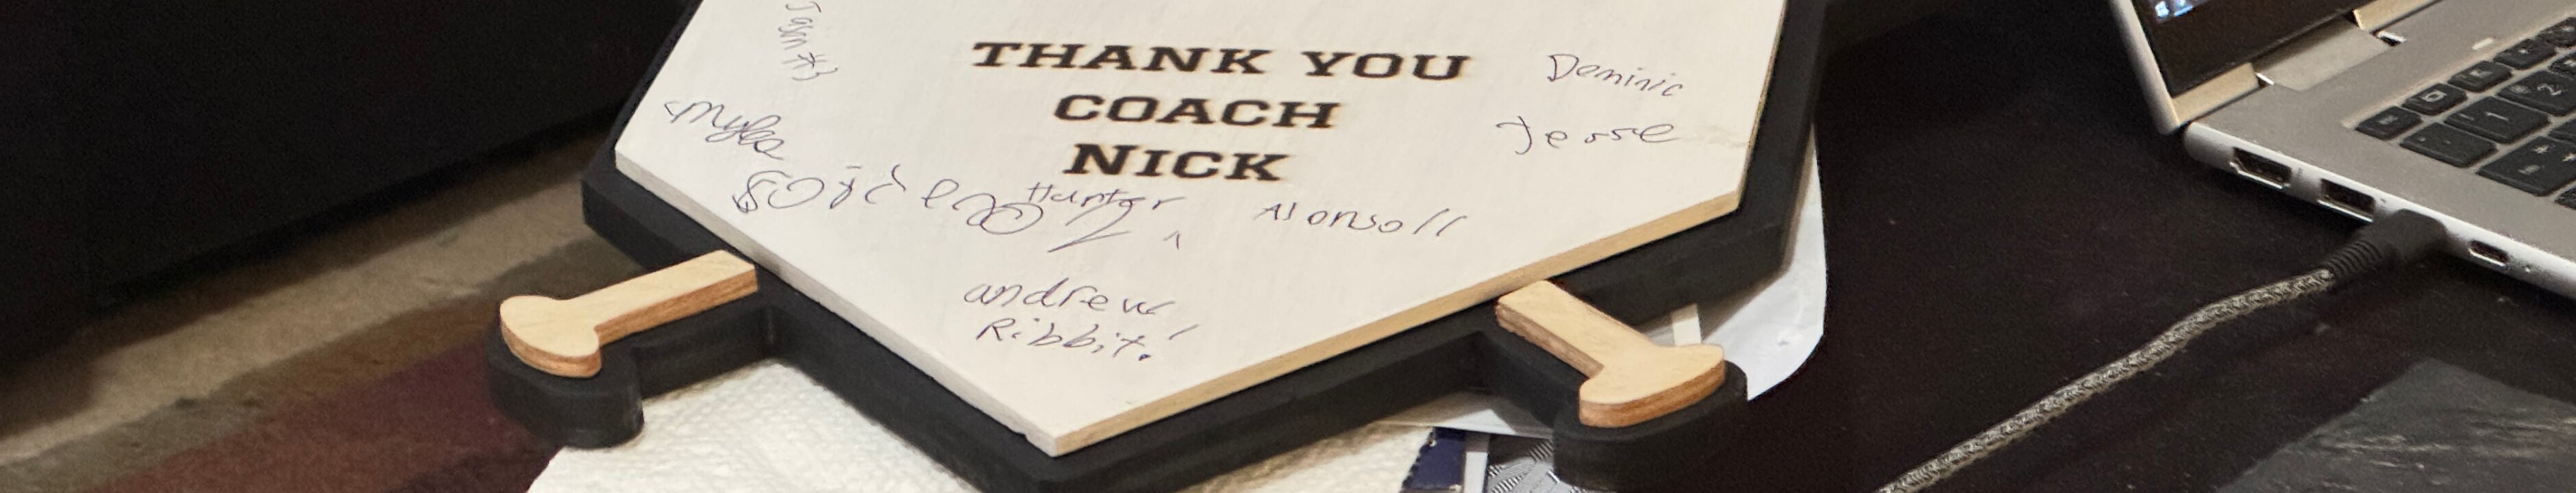 Jason #3
THANK YOU
COACH
NICK
Dominic
Jesse
Myles
Hunter
Alonso 11
andrew
Ribbit!